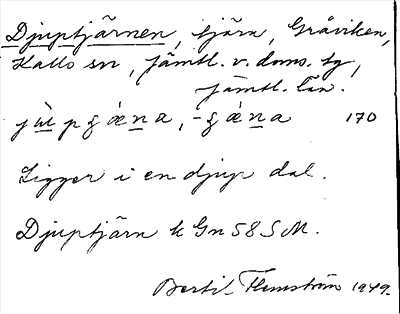 Djuptjärnen, tjärn, Gråviken,
Kallo sn, Jämtl. v. doms. tg,
Jämtl. län.
170
Ligger i en djup dal.
Djuptjärn k Gn 58 S M.
Bertil Flemström 1949.